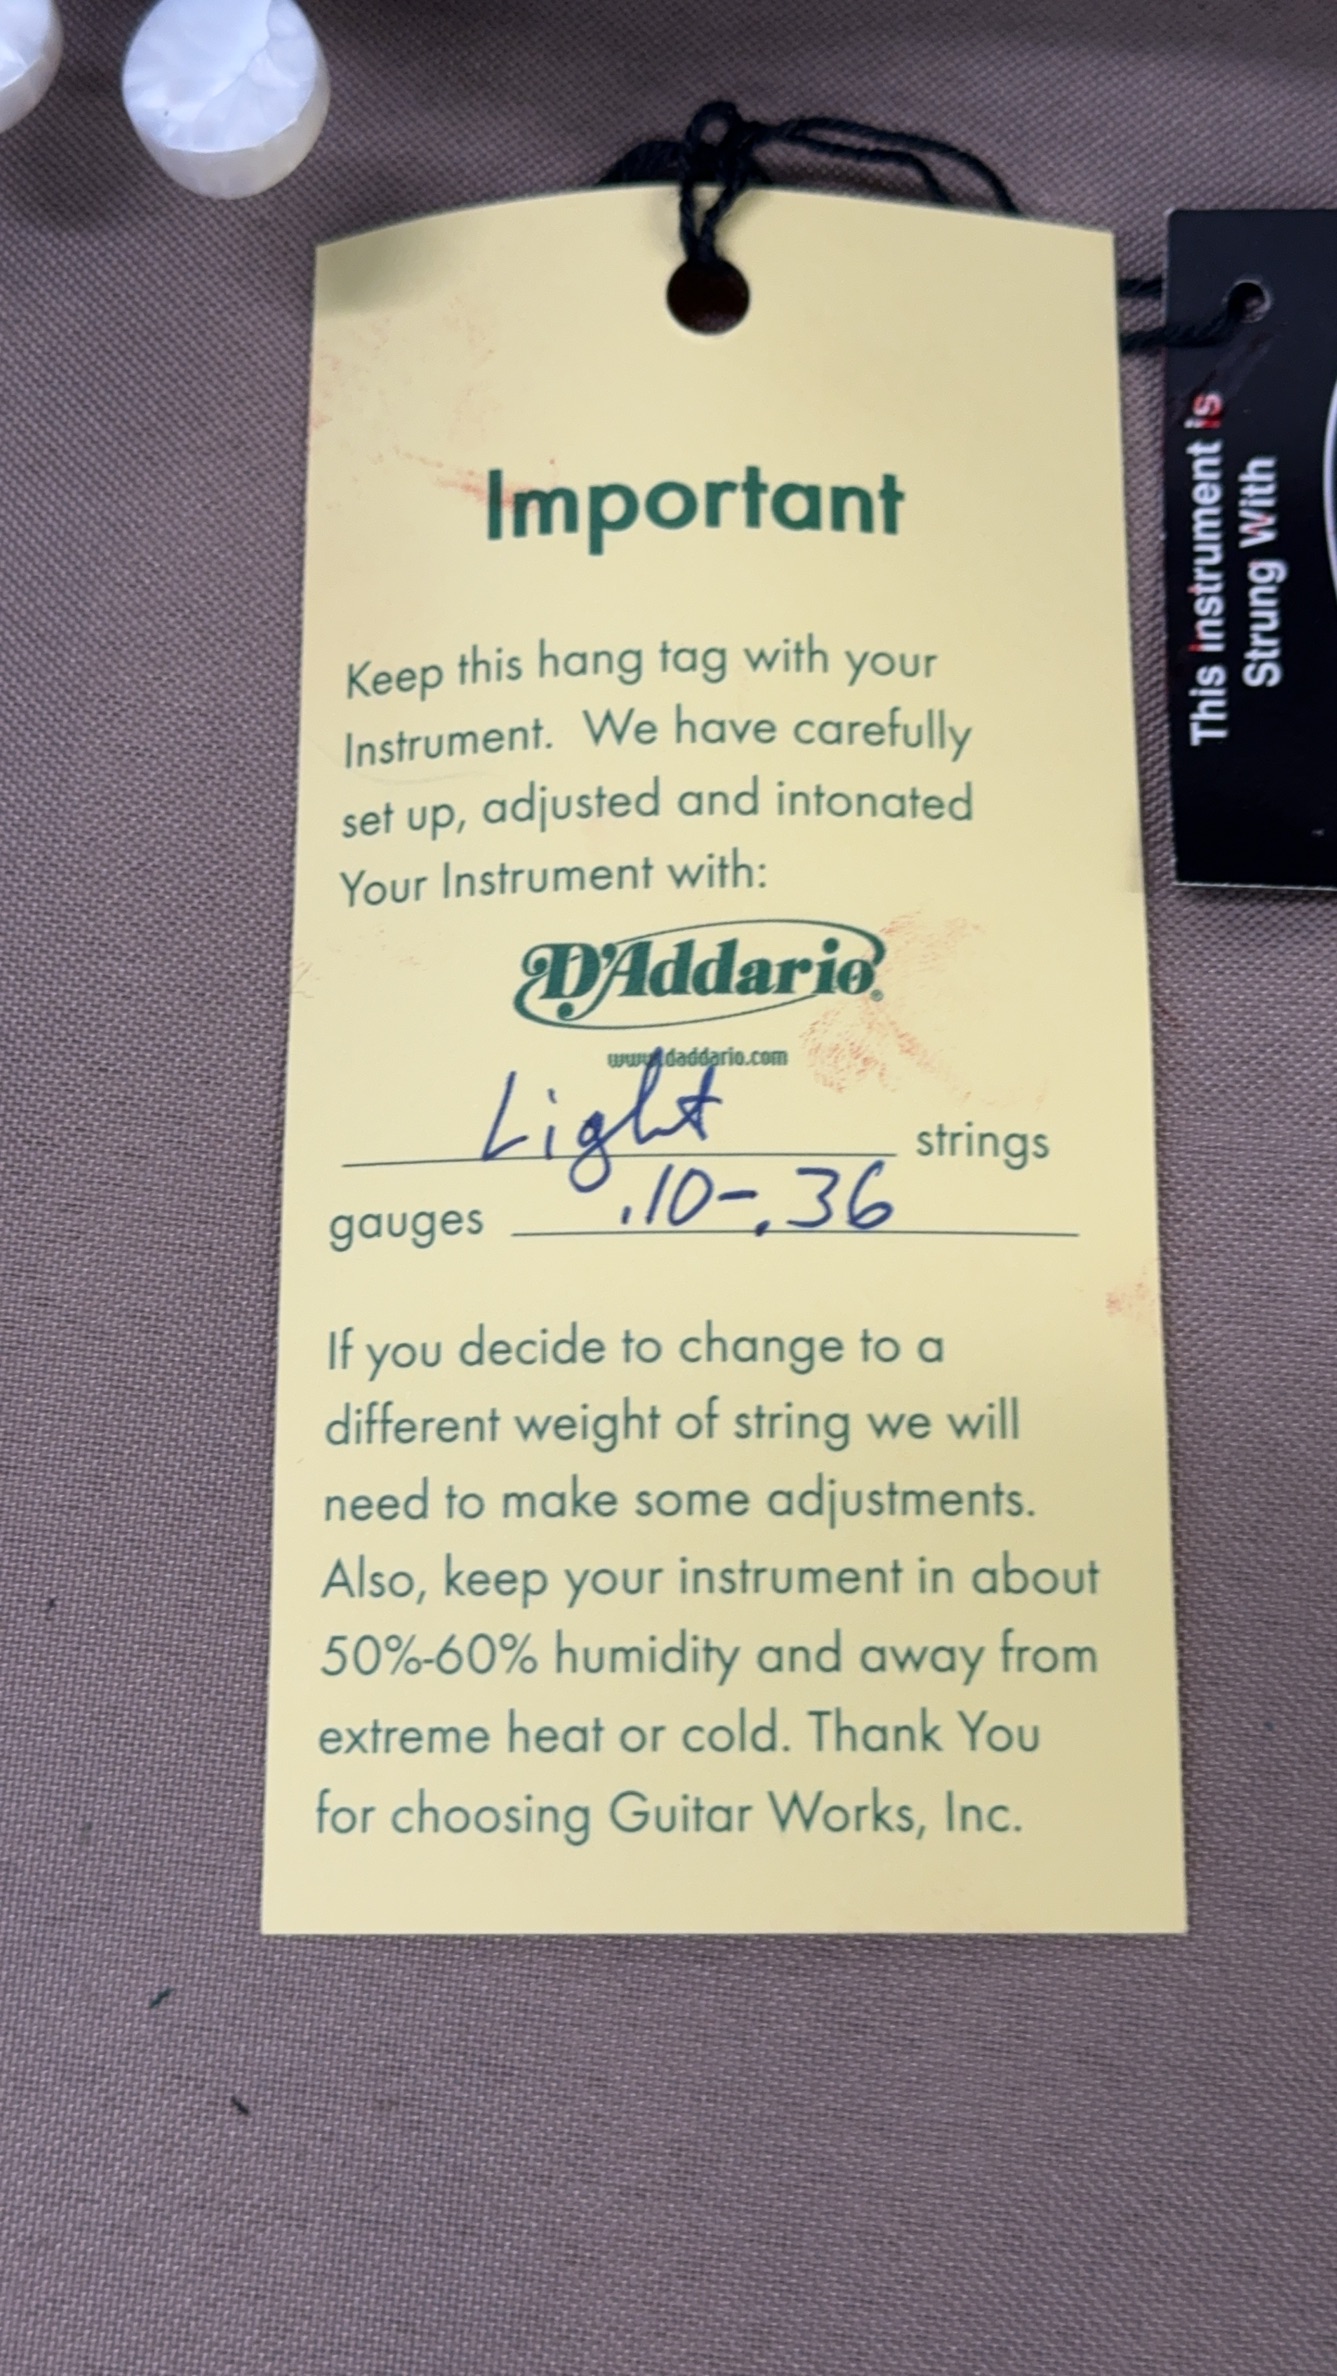 Important
Keep this hang tag with your
Instrument. We have carefully
set up, adjusted and intonated
Your Instrument with:
D'Addario®
www.daddario.com
Light strings
gauges .10-.36
If you decide to change to a
different weight of string we will
need to make some adjustments.
Also, keep your instrument in about
50%-60% humidity and away from
extreme heat or cold. Thank You
for choosing Guitar Works, Inc.
This Instrument is
Strung With